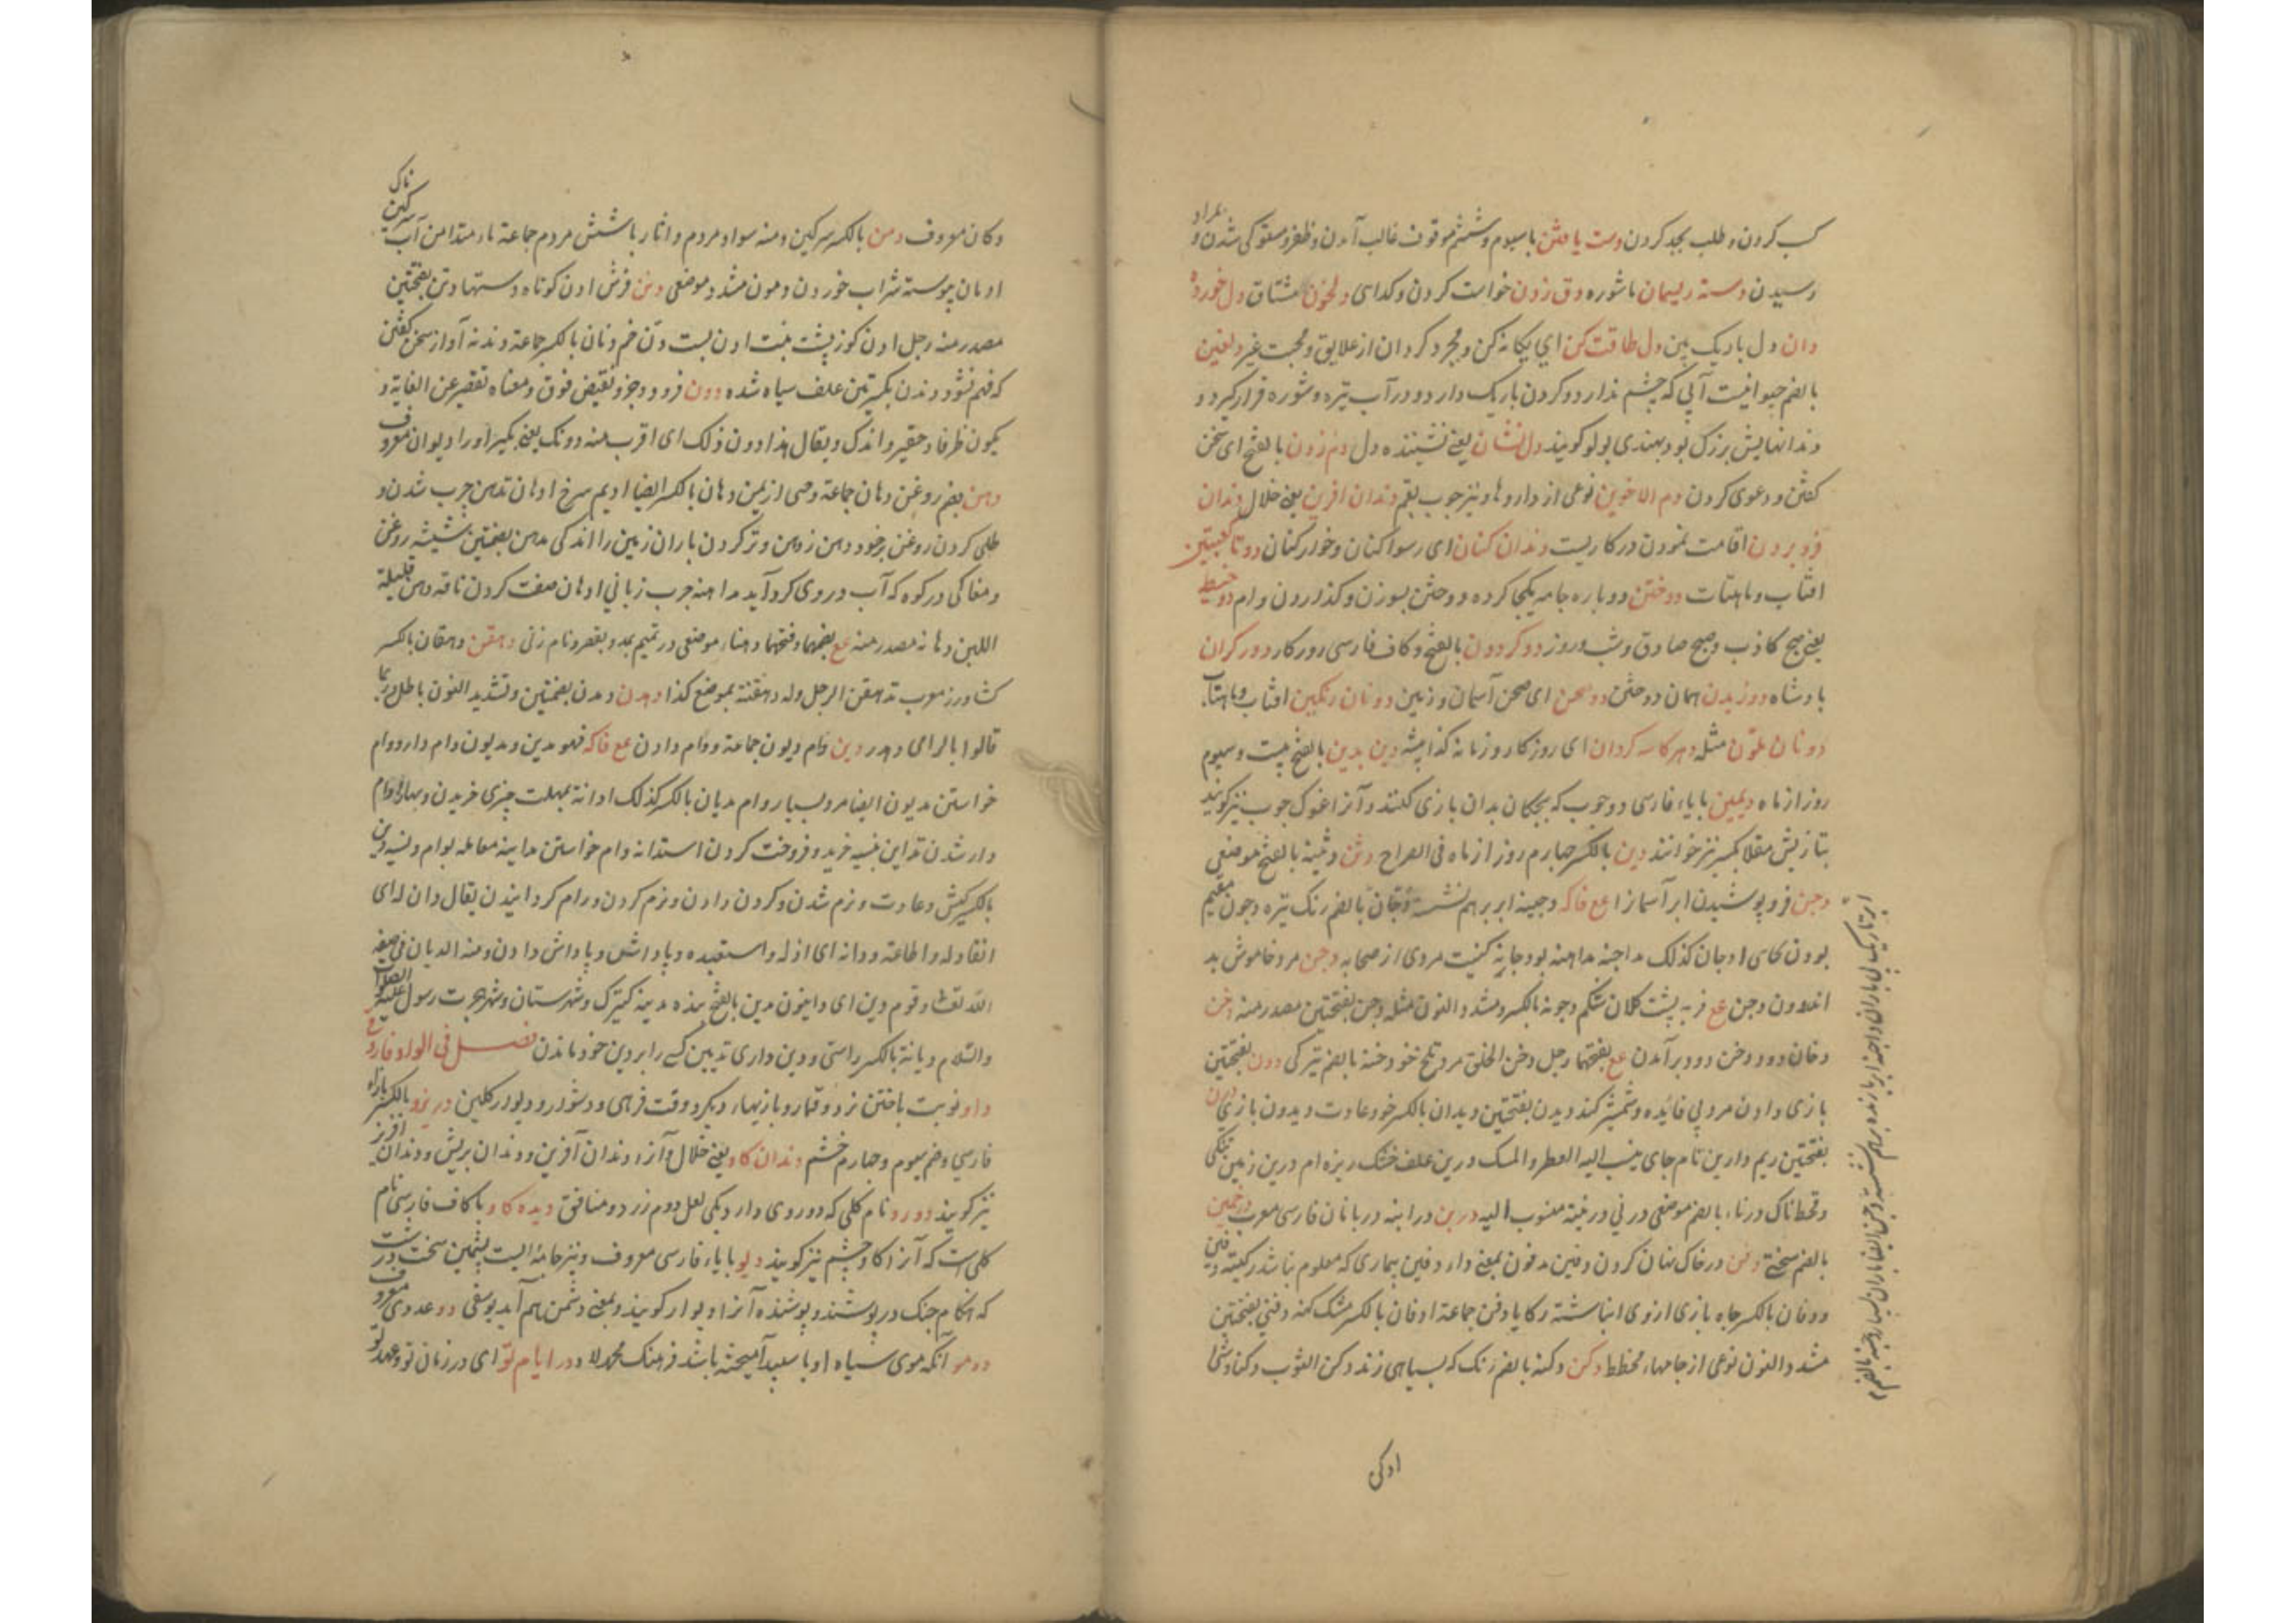 کسب کردن و طلب بجد کردن دست یافتن باسیوم و ششم موقوف غالب آمدن و ظفر و مستولی شدن و بمراد
رسیدن دسته ریسمان ماشوره دق زدن خواست کردن و کدایی دلخون مشتاق دل خورده
دان دل باریک بین دل طاقت کن ای یکانه کن و مجرد کردان از علایق و محبت غیر دلفین
بالضم حیوانیست آبی که چشم ندارد و کردن باریک دارد و در آب تیره و شوره قرار کیرد و
دندانهایش بزرک بود بهندی بولو کویند دل نشان یعنی نشیننده دل دم زدن بالفتح ای سخن
کفتن و دعوی کردن دم الاخوین نوعی از داروها و نیز چوب بقم دندان افرین یعنی خلال دندان
فرو بردن اقامت نمودن در کاریست دندان کنان ای رسوا کنان و خوار کنان دو تا کعبتین
افتاب و ماهتاب دوختن دوباره جامه یکجا کرده دوختن بسوزن و کذاردن وام دو خیط
یعنی صبح کاذب و صبح صادق و شب و روز دو کردون بالفتح و کاف فارسی روزکار دور کران
بادشاه دوزیدن همان دوختن دو صحن ای صحن آسمان و زمین دو نان رنکین افتاب و ماهتاب
دو نان ملون مثله دهر کاسه کردان ای روزکار و زمانه کذا میشه دین بدین بالفتح بیست و سیوم
روز از ماه دیمین بایاء فارسی دو چوب که بچکان بدان بازی کنند و آنرا غوک چوب نیز کویند
بتازیش مقلا بکسر نیز خوانند دین بالکسر چهارم روز از ماه فی الصراح دثن و ثینه بالفتح موضعی
دجن فرو پوشیدن ابر آسمانرا عع فاکه دجینه ابر بر هم نشسته دجان بالضم رنک تیره دجون مقیم
بودن کاسی ادجان کذلک مداجنه مداهنه بو دجانه کنیت مردی از صحابه دحن مرد خاموش بد
اندرون دحن عع فربه پشت کلان شکم دحونه بالکسر و مشدد النون مثله دحن بفتحتین مصدر منه دخن
دخان دود دخن دود برآمدن عع بفتحها رجل دخن الخلق مرد تلخ خو دخنة بالضم تیرکی ددن بفتحتین
بازی دادن مرد بی فائده و شمشیر کند دیدن بفتحتین دیدان بالکسر خو و عادت دیدون بازی درن
بفتحتین ریم دارین نام جای ینسب الیه العطر و المسک درین علف خشک ریزه ام درین زمین تنکی
و قحطناک درناء بالضم موضعی درنی درنیة منسوب الیه دربن درابنه دربانان فارسی معرب درخمین
بالضم سختی دفن در خاک نهان کردن دفین مدفون بمعنی داء دفین بیماری که معلوم نباشد رکیة دفین
و دفان بالکسر چاه بازی ازوی انباشته رکایا دفن جماعة ادفان بالکسر مشک کهنه دفنی بفتحتین
مشدد النون نوعی از جامهاء مخطط دکن دکنه بالضم رنک که بسیاهی زند دکن الثوب دکنا و شی
ادکن
دکان معروف دمن بالکسر سرکین و منه سواد مردم و اثار باشش مردم جماعة ماء متدامن آب سرکین ناک
ادمان پیوسته شراب خوردن دمون مشدد موضعی دنن فرش ادن کوتاه دستها دنن بفتحتین
مصدر منه رجل ادن کوز پشت بیت ادن پست دن خم دنان بالکسر جماعة دندنه آواز سخن کفتن
که فهم نشود دندن بکسرتین علف سیاه شده دون فرود و جز و نقیض فوق و معناه تقصیر عن الغایة و
یکون ظرفا و حقیر و اندک و یقال هذا دون ذلک ای اقرب منه دونک یعنی بکیر او را دیوان معروف
دهن بضم روغن دهان جماعة و حی از یمن دهان بالکسر ایضا ادیم سرخ ادهان تدهن چرب شدن و
طلی کردن روغن بر خود دهن زدن و تر کردن باران زمین را اندکی مدهن بضمتین شیشه روغن
و مغاکی در کوه که آب در وی کرد آید مداهنه چرب زبانی ادهان صفت کردن ناقه دهین قلیلة
اللبن دهانه مصدر منه عع بضمها و فتحها دهناء موضعی در تمیم بمد و بقصر و نام زنی دهقن دهقان بالکسر
کشاورز معرب تدهقن الرجل وله دهقنة بموضع کذا دهدن دهدن بضمتین و تشدید النون باطل و ربما
قالوا بالرای دهدر دین وام دیون جماعة و وام دادن عع فاکه فهو مدین و مدیون وام دار و وام
خواستن مدیون ایضا مرد بسیار وام مدیان بالکسر کذلک ادانة بمهلت چیزی خریدن و بها و وام
دار شدن تداین نسیه خرید و فروخت کردن استدانه وام خواستن مداینه معامله بوام و نسیه دین
بالکسر کیش و عادت و نرم شدن و کردن دادن و نرم کردن و رام کردانیدن یقال دان له ای
انقاد له و اطاعة و دانه ای اذله و استعبده و پاداش و پاداش دادن و منه الدیان فی صفة
الله تعالی و قوم دین ای داینون مدین بالفتح بنده مدینه کنیزک و شهرستان و شهر هجرت رسول علیه الصلوة
والسلام دیانة بالکسر راستی و دین داری تدیین کسی را بر دین خود ماندن فصل فی الواو فارسی
داو نوبت باختن نرد و قمار و بازیهاء دیکر و وقت فرهی و دشوار و دیوار کلین دریزو بالکسر بازاء
فارسی و ضم سیوم و چهارم خشم دندان کاو یعنی خلال و آنرا دندان آفرین و دندان پریش و دندان افریز
نیز کویند دورو نام کلی که دو روی دارد یکی لعل دوم زرد و منافق دیده کاو با کاف فارسی نام
کلی است که آنرا کاوچشم نیز کویند دیو بایاء فارسی معروف و نیز جامه ایست پشمین سخت درشت
که هنکام جنک در پوشند و پوشنده آنرا دیوار کویند و بمعنی دشمن هم آید یوسفی دو عددی معروف
دومو آنکه موی سیاه او با سپید آمیخته باشد فرهنک محمد لاد در ایام تو ای در زمان تو و عهد تو